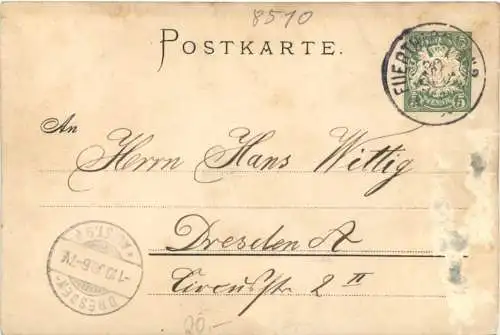 8510
POSTKARTE.
5
An
Herrn Hans Wittig
Dresden A
Circusstr 2 II
DRESDEN-
20.-